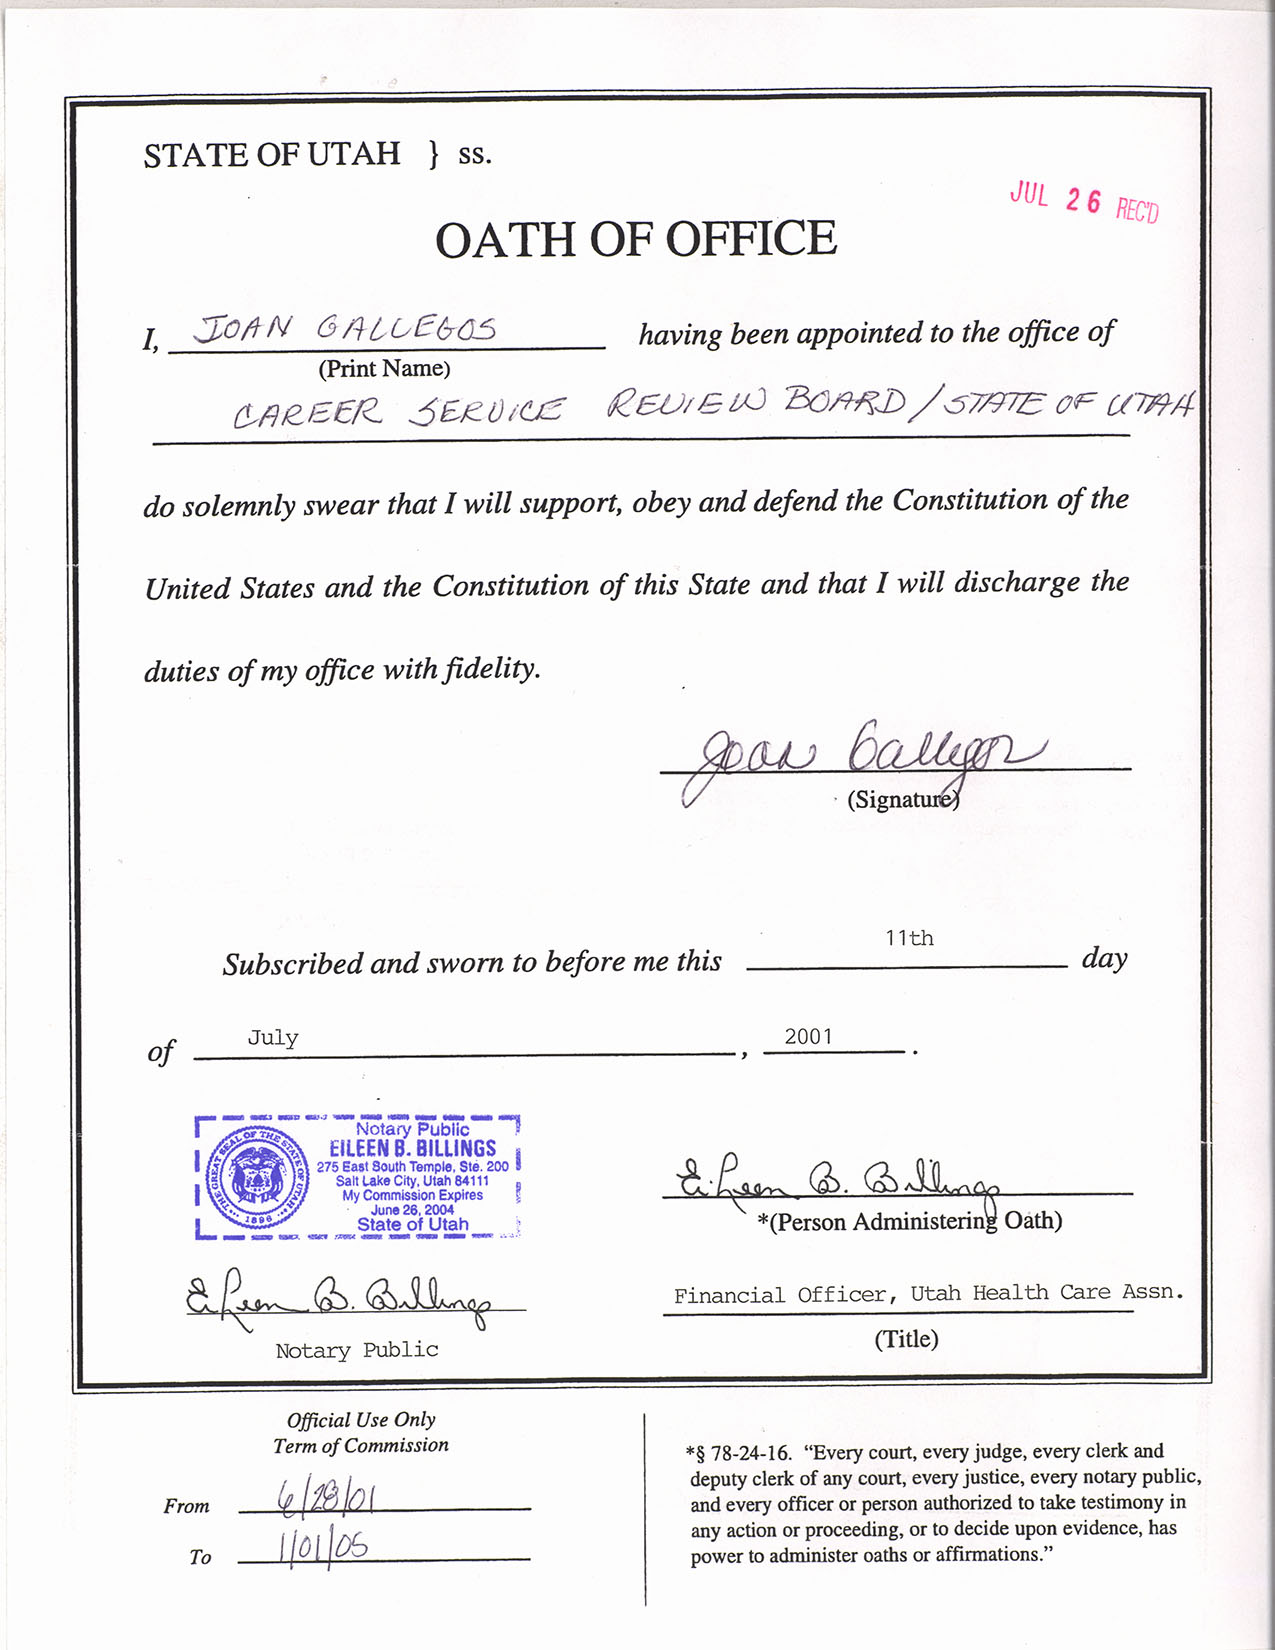 STATE OF UTAH } ss.
JUL 26 REC'D
OATH OF OFFICE
I, JOAN GALLEGOS having been appointed to the office of
(Print Name)
CAREER SERVICE REVIEW BOARD / STATE OF UTAH
do solemnly swear that I will support, obey and defend the Constitution of the
United States and the Constitution of this State and that I will discharge the
duties of my office with fidelity.
Joan Gallegos
(Signature)
Subscribed and sworn to before me this 11th day
of July, 2001.
Notary Public
EILEEN B. BILLINGS
275 East South Temple, Ste. 200
Salt Lake City, Utah 84111
My Commission Expires
June 26, 2004
State of Utah
THE GREAT SEAL OF THE STATE OF UTAH
1896
Eileen B. Billings
*(Person Administering Oath)
Eileen B. Billings
Notary Public
Financial Officer, Utah Health Care Assn.
(Title)
Official Use Only
Term of Commission
From 6/28/01
To 1/01/05
*§ 78-24-16. “Every court, every judge, every clerk and
deputy clerk of any court, every justice, every notary public,
and every officer or person authorized to take testimony in
any action or proceeding, or to decide upon evidence, has
power to administer oaths or affirmations.”